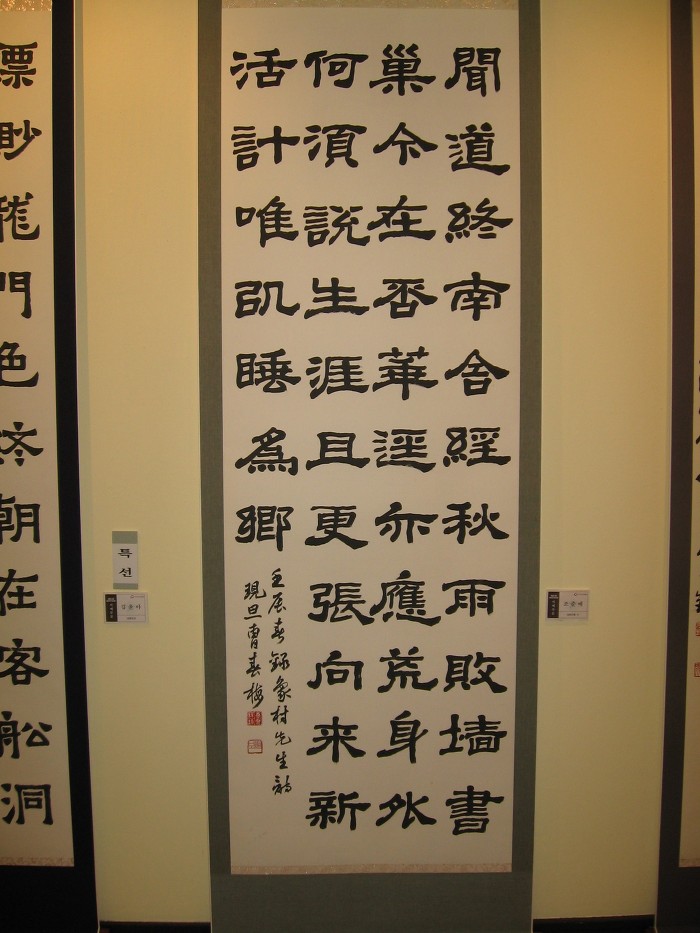 縹緲龍門色終朝在客船洞
聞道終南舍經秋雨敗墻書
巢今在否華逕亦應荒身外
何須說生涯且更張向來新
活計唯以睡爲鄉
壬辰春錄象村先生詩
現旦曺春梅
특선